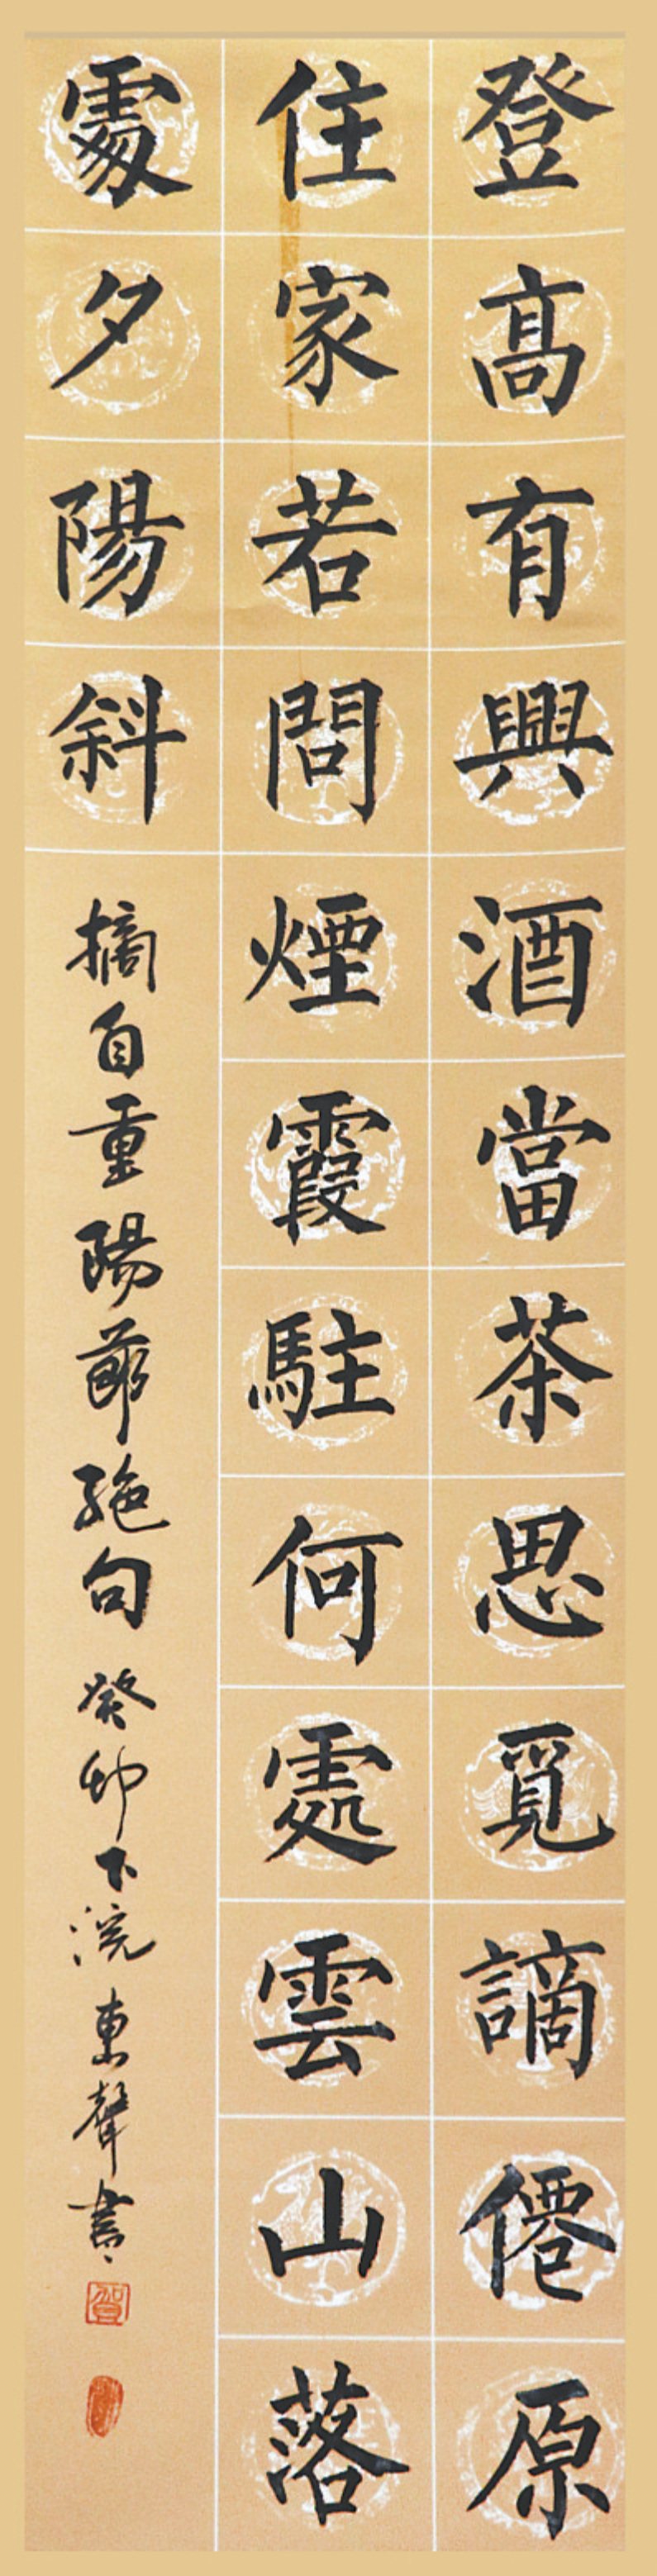 登高有興酒當茶思覓謫僊原
住家若問煙霞駐何處雲山落
處夕陽斜
摘自重陽節絕句癸卯下浣東聲書
賀